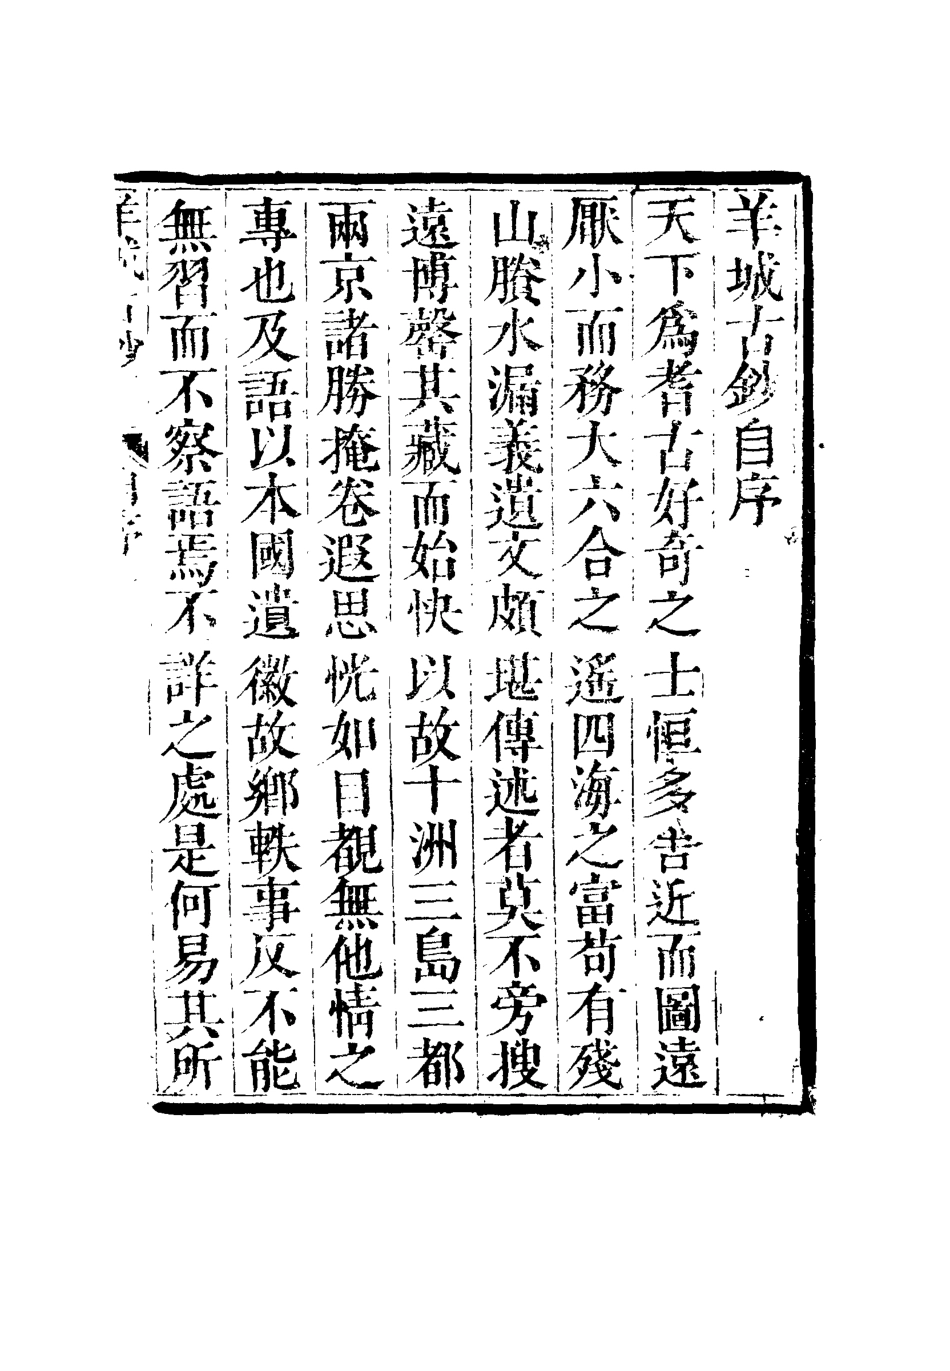 羊城古鈔自序
天下爲耆古好奇之士恒多告近而圖遠
厭小而務大六合之遙四海之富苟有殘
山賸水漏義遺文頗堪傳述者莫不旁搜
遠博罄其藏而始快以故十洲三島三都
兩京諸勝掩卷遐思恍如目覩無他情之
專也及語以本國遺徽故鄉軼事反不能
無習而不察語焉不詳之處是何易其所
羊城古鈔 自序